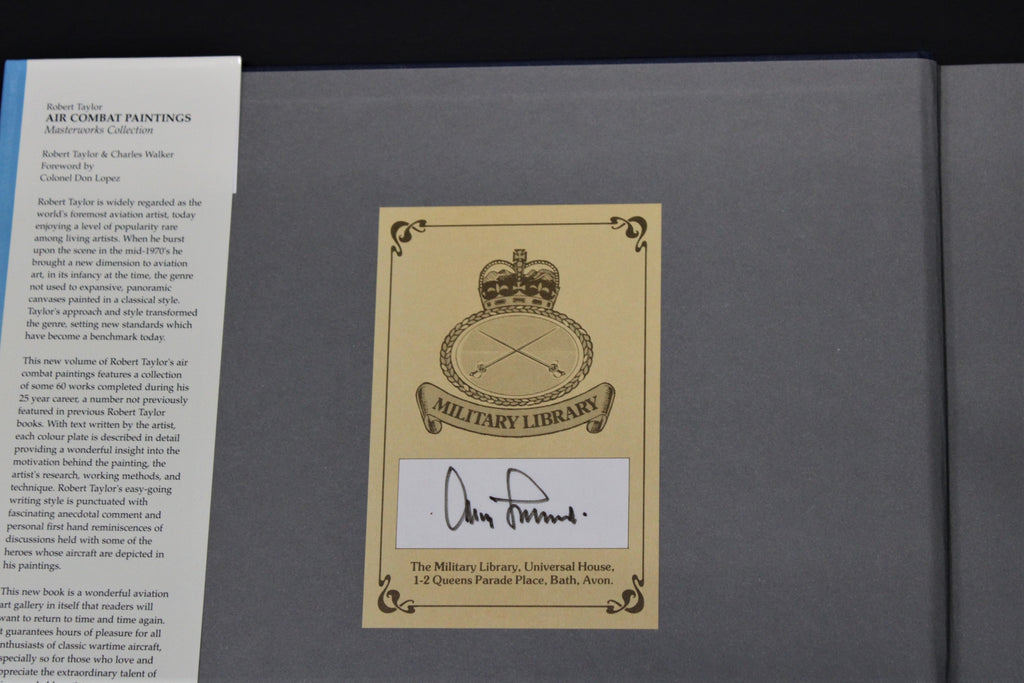 Robert Taylor
AIR COMBAT PAINTINGS
Masterworks Collection
Robert Taylor & Charles Walker
Foreword by
Colonel Don Lopez
Robert Taylor is widely regarded as the
world's foremost aviation artist, today
enjoying a level of popularity rare
among living artists. When he burst
upon the scene in the mid-1970's he
brought a new dimension to aviation
art, in its infancy at the time, the genre
not used to expansive, panoramic
canvases painted in a classical style.
Taylor's approach and style transformed
the genre, setting new standards which
have become a benchmark today.
This new volume of Robert Taylor's air
combat paintings features a collection
of some 60 works completed during his
25 year career, a number not previously
featured in previous Robert Taylor
books. With text written by the artist,
each colour plate is described in detail
providing a wonderful insight into the
motivation behind the painting, the
artist's research, working methods, and
technique. Robert Taylor's easy-going
writing style is punctuated with
fascinating anecdotal comment and
personal first hand reminiscences of
discussions held with some of the
heroes whose aircraft are depicted in
his paintings.
This new book is a wonderful aviation
art gallery in itself that readers will
want to return to time and time again.
t guarantees hours of pleasure for all
nthusiasts of classic wartime aircraft,
specially so for those who love and
ppreciate the extraordinary talent of
MILITARY LIBRARY
The Military Library, Universal House,
1-2 Queens Parade Place, Bath, Avon.